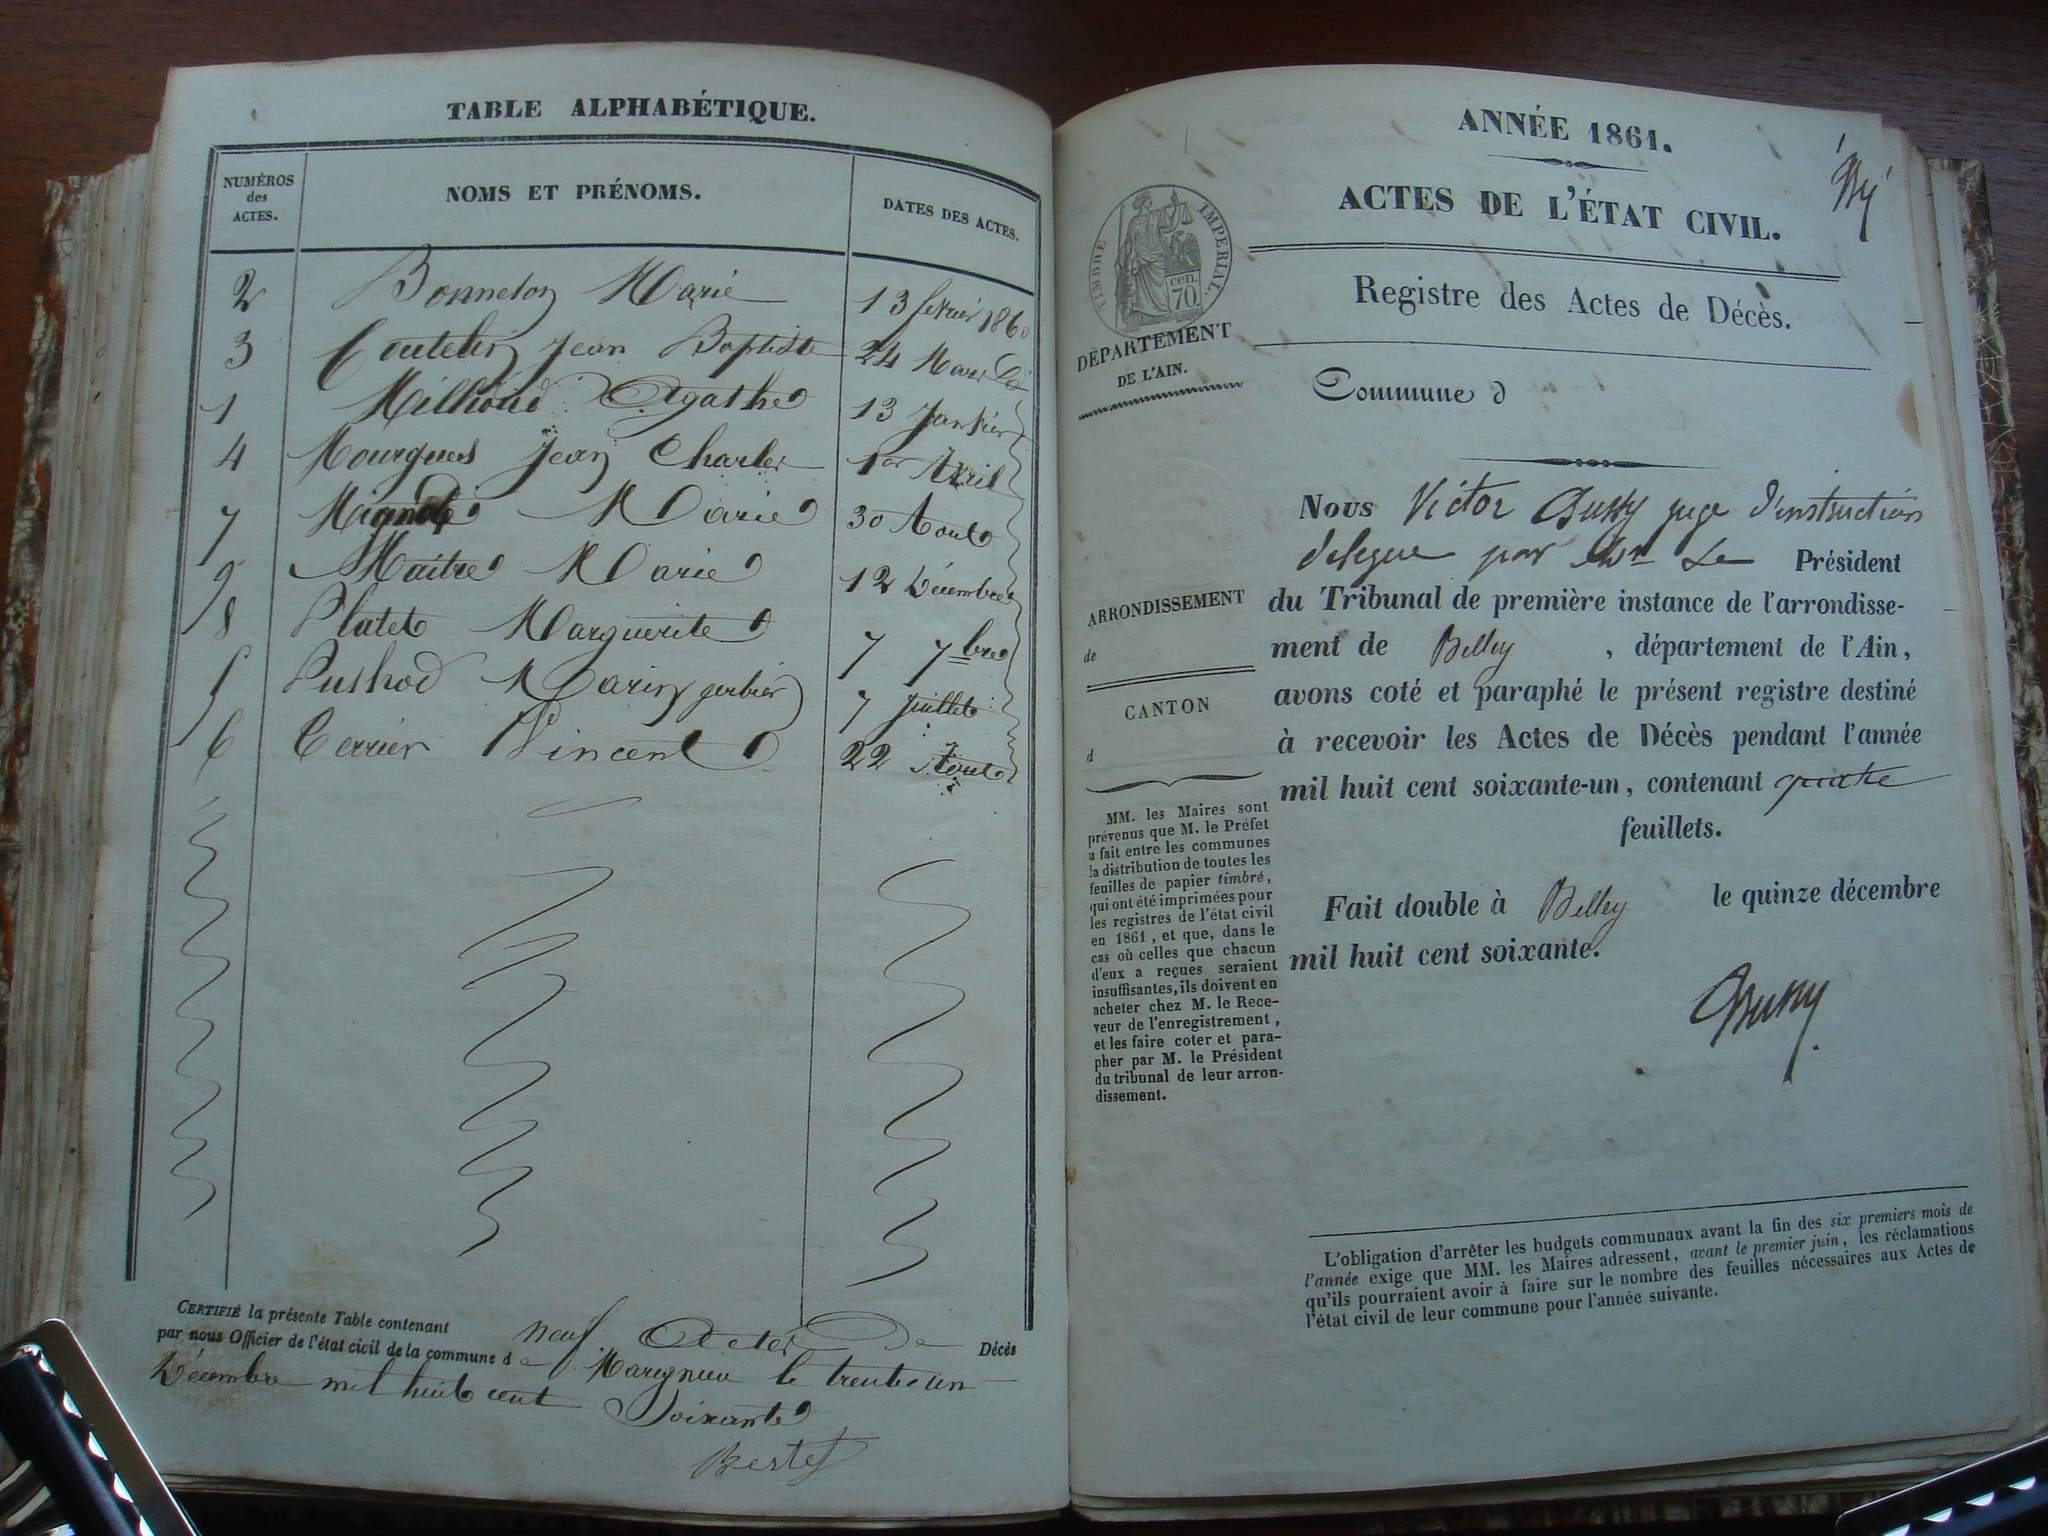 TABLE ALPHABÉTIQUE.
NUMÉROS des ACTES. NOMS ET PRÉNOMS. DATES DES ACTES.
2 Bonneton Marie 13 février 1860
3 Coutelin Jean Baptiste 24 Mars
1 Agathe 13 Janvier
4 Mourgues Jean Charles 1er Avril
7 Marie 30 Aout
9 Maitre Marie 12 Décembre
8 Platet Marguerite 7 7bre
5 7 Juillet
6 Terrier Vincent 22 Aout
CERTIFIÉ la présente Table contenant neuf Actes De Décès
par nous Officier de l'état civil de la commune de Marignieu le trente un
Décembre mil huit cent Soixante
Bertet
ANNÉE 1861.
ACTES DE L'ÉTAT CIVIL.
TIMBRE IMPÉRIAL.
70 cen.
Registre des Actes de Décès.
DÉPARTEMENT
DE L'AIN.
Commune d
Nous Victor juge d'instruction
delegue par Mr Le Président
du Tribunal de première instance de l'arrondisse-
ment de Belley, département de l'Ain,
avons coté et paraphé le présent registre destiné
à recevoir les Actes de Décès pendant l'année
mil huit cent soixante-un, contenant quatre
feuillets.
Fait double à Belley le quinze décembre
mil huit cent soixante.
ARRONDISSEMENT
de
CANTON
d
MM. les Maires sont
prévenus que M. le Préfet
a fait entre les communes
la distribution de toutes les
feuilles de papier timbré,
qui ont été imprimées pour
les registres de l'état civil
en 1861, et que, dans le
cas où celles que chacun
d'eux a reçues seraient
insuffisantes, ils doivent en
acheter chez M. le Rece-
veur de l'enregistrement,
et les faire coter et para-
pher par M. le Président
du tribunal de leur arron-
dissement.
L'obligation d'arrêter les budgets communaux avant la fin des six premiers mois de
l'année exige que MM. les Maires adressent, avant le premier juin, les réclamations
qu'ils pourraient avoir à faire sur le nombre des feuilles nécessaires aux Actes de
l'état civil de leur commune pour l'année suivante.